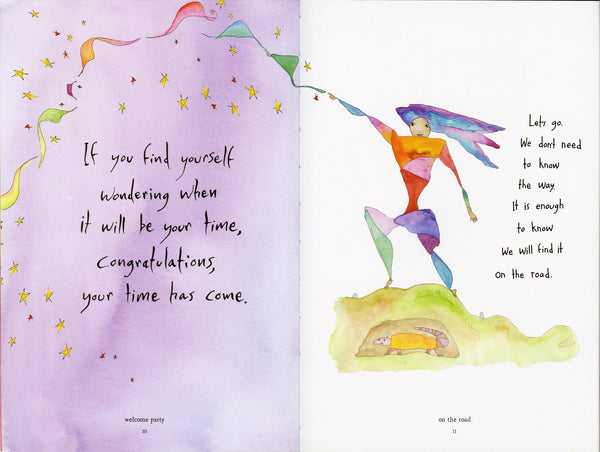 If you find yourself
wondering when
it will be your time,
Congratulations,
your time has come.
welcome party
10
Let's go.
We don't need
to know
the way.
It is enough
to know
We will find it
on the road.
on the road
11